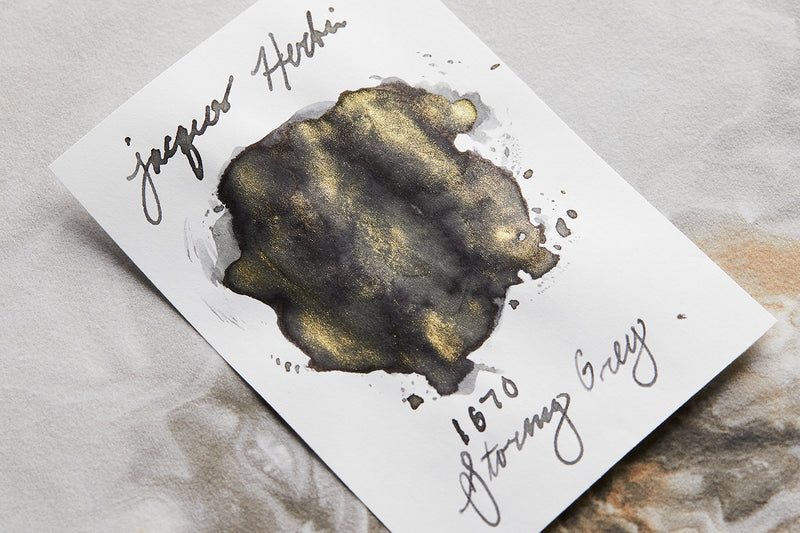 jacques Herbin
1670
Stormy Grey